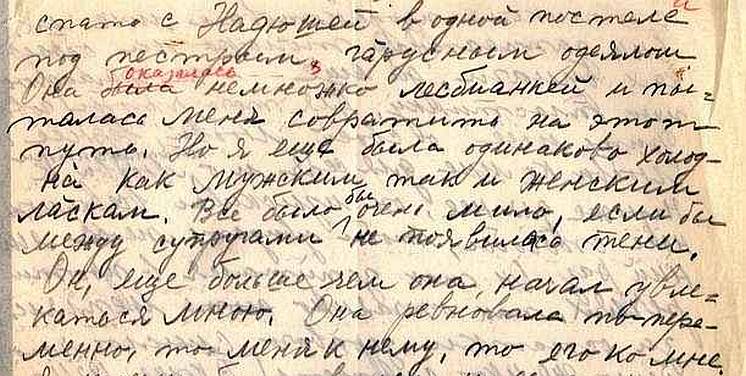 спать с Надюшей в одной постеле и
под пестрым, гарусным одеялом
оказалась
Она была немножко лесбианкей и пы-
талась меня совратить на этот
путь. Но я еще была одинаково холод-
на как мужским так и женским
ласкам. Все было бы очень мило, если бы
между супругами не появилась тени.
Он, еще больше чем она, начал увле-
каться мною. Она ревновала попере-
менно, то меня к нему, то его ко мне.